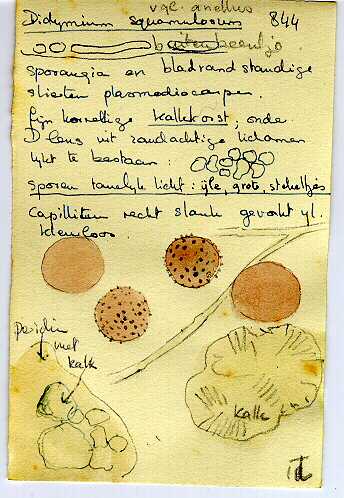 vgl. anellus
Didymium squamulosum 844
buitenbeentje
sporangia en bladrandstandige
slierten plasmodiocarpen.
fijn korrelige kalkkorst, onder
D lens uit zandachtige lichamen
lijkt te bestaan:
sporen tamelijk licht: ijle, grote, stekeltjes
Capillitium recht slank gevorkt ijl.
kleurloos.
peridium
met
kalk
kalk